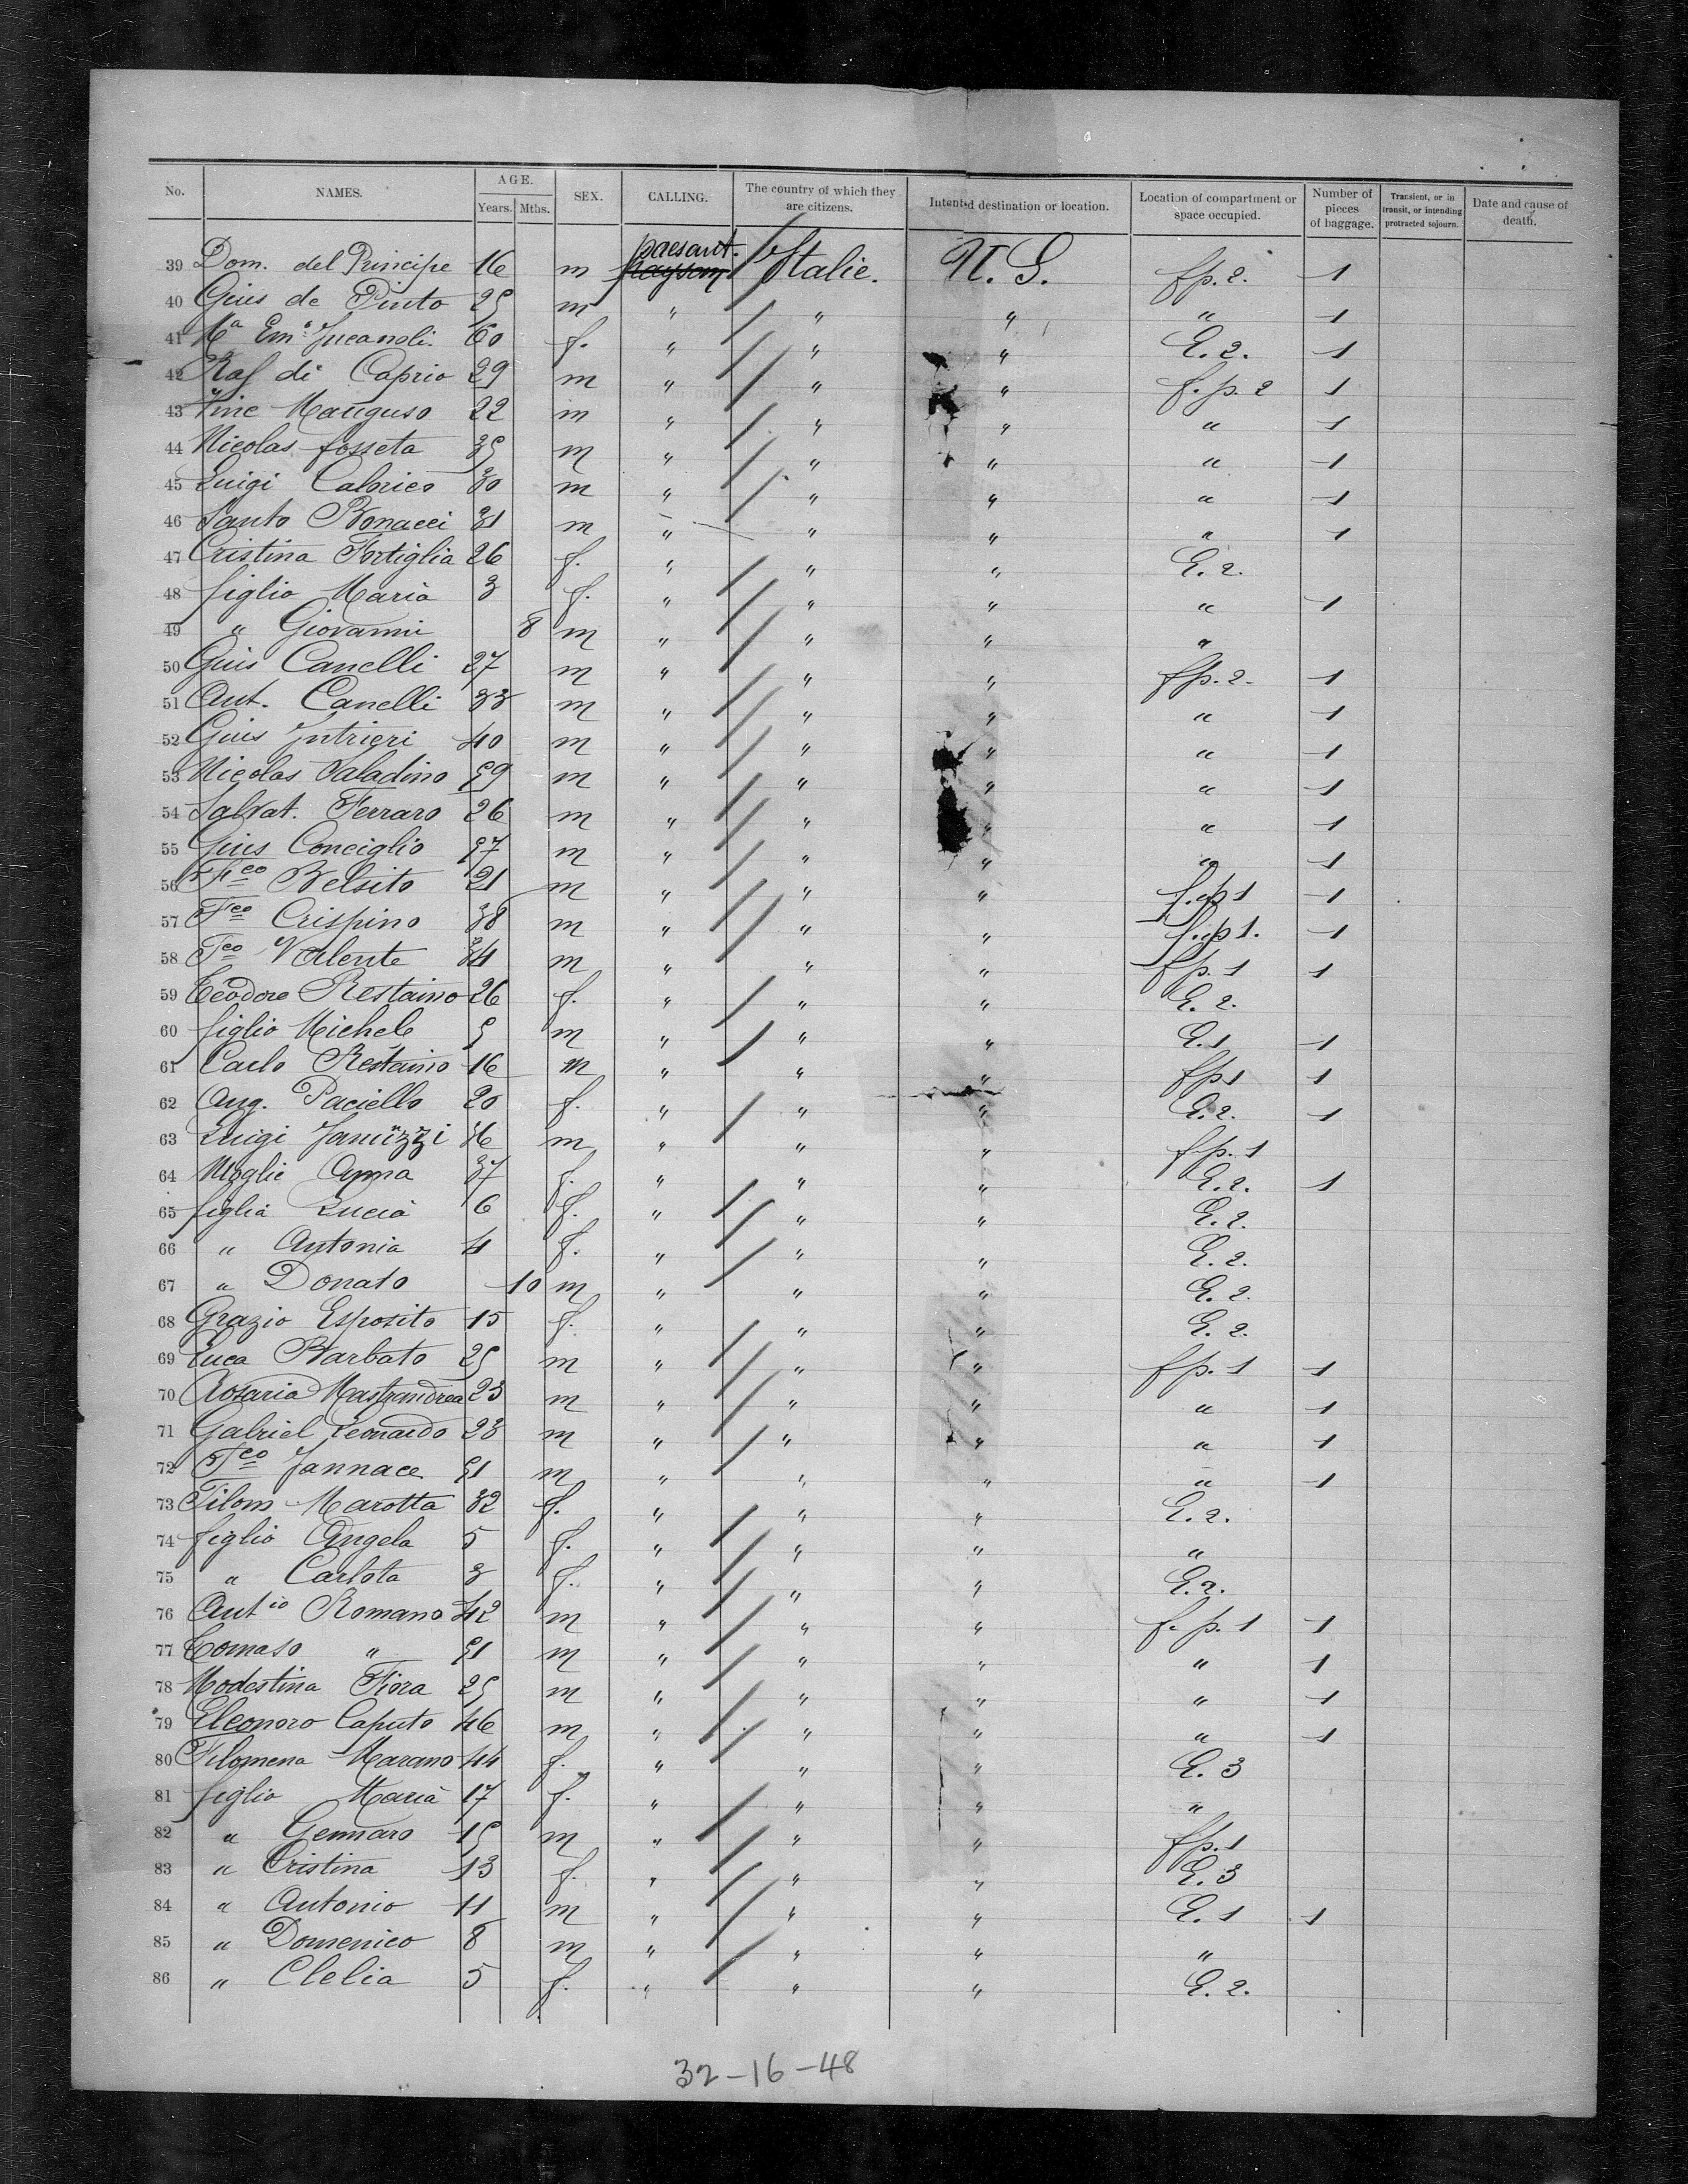 No. NAMES. AGE. Years. Mths. SEX. CALLING. The country of which they are citizens. Intented destination or location. Location of compartment or space occupied. Number of pieces of baggage. Transient, or in transit, or intending protracted sojourn. Date and cause of death.
paesant.
39 Dom. del Principe 16 m Italie. U. S. fp. 2. 1
40 Gius de Pinto 25 m " " " " 1
41 Mª Emª f. 60 " " " E. 2. 1
42 Raf di Caprio 29 m " " " f. p. 2 1
43 Vinc Manguso 22 m " " " " 1
44 Nicolas fosseta 35 m " " " " 1
45 Luigi Calorico 30 m " " " " 1
46 Santo Bonacci 31 m " " " " 1
47 Cristina Fortiglia 26 f. " " " E. 2.
48 figlio Maria 3 f. " " " " 1
49 " Giovanni 8 m " " " "
50 Guis Canelli 27 m " " " fp. 2. 1
51 Ant. Canelli 33 m " " " " 1
52 Guis Intrieri 40 m " " " " 1
53 Nicolas Saladino 59 m " " " " 1
54 Salvat. Ferraro 26 m " " " " 1
55 Guis Conciglio 57 m " " " " 1
56 Fco Belsito 21 m " " " f. p 1 1
57 Fco Crispino 38 m " " " f. p 1. 1
58 Fco Valente 34 m " " " fp. 1 1
59 Teodoro Restaino 26 f. " " " E. 2.
60 figlio Michele 5 m " " " E. 1 1
61 Carlo Restaino 16 m " " " fp 1 1
62 Ang. Paciello 20 f. " " " E. 2. 1
63 Luigi Januzzi 36 m " " " fp. 1
64 Moglie Anna 37 f. " " " E. 2. 1
65 figlia Lucia 6 f. " " " E. 2.
66 " Antonia 4 f. " " " E. 2.
67 " Donato 10 m " " " E. 2.
68 Grazio Esposito 15 f. " " " E. 2.
69 Luca Barbato 25 m " " " fp. 1 1
70 Rosaria Mastrandrea 23 m " " " " 1
71 Gabriel Leonardo 23 m " " " " 1
72 Fco Jannace 51 m " " " " 1
73 Filom Marotta 32 f. " " " E. 2.
74 figlio Angela 5 f. " " " "
75 " Carlota 3 f. " " " E. 2.
76 Antio Romano 42 m " " " f. p. 1 1
77 Tomaso " 51 m " " " " 1
78 Modestina Fiora 25 m " " " " 1
79 Eleonoro Caputo 46 m " " " " 1
80 Filomena Marano 44 f. " " " E. 3
81 figlio Maria 17 f. " " " "
82 " Gennaro 15 m " " " fp. 1
83 " Cristina 13 f. " " " E. 3
84 " Antonio 11 m " " " E. 1 1
85 " Domenico 8 m " " " "
86 " Clelia 5 f. " " " E. 2.
32-16-48